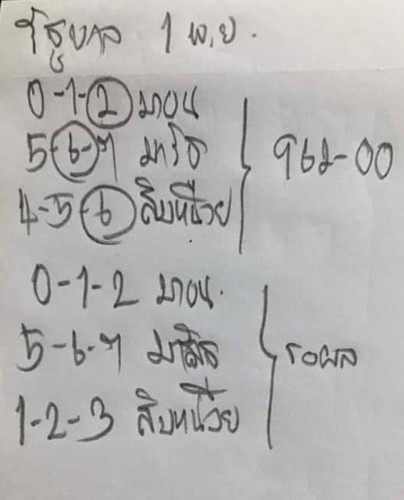 รัฐบาล 1 พ.ย.
0-1-2 มาบน
5-6-7
4-5-6 สิบหน่วย
962-00
0-1-2 มาบน
5-6-7
1-2-3 สิบหน่วย
รอผล